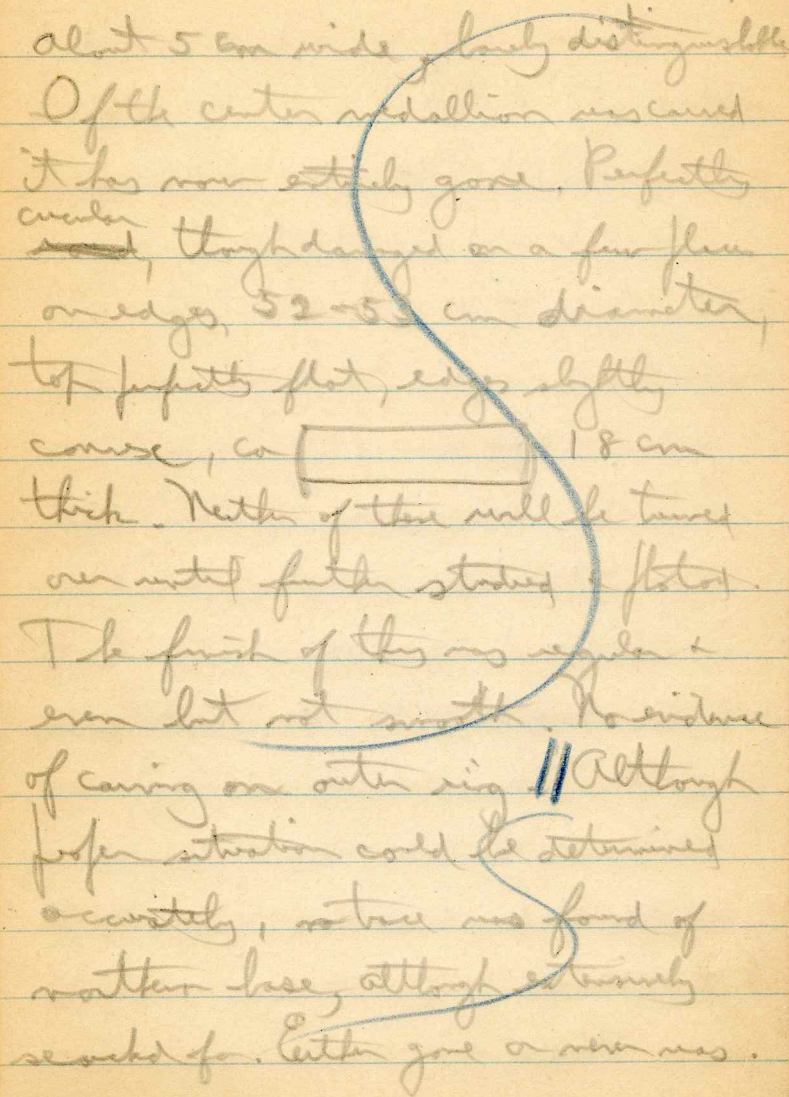 about 5 cm wide, barely distinguishable
If the center medallion was carved
it has now entirely gone. Perfectly
circular
round, though damaged on a few places
on edges, 52-53 cm diameter,
top perfectly flat, edges slightly
convex, ca 18 cm
thick. Neither of these will be turned
over until further studied & photod.
The finish of this was regular &
even but not smooth. No evidence
of carving on outer ring. || Although
proper situation could be determined
accurately, no trace was found of
northern base, although extensively
searched for. Either gone or never was.